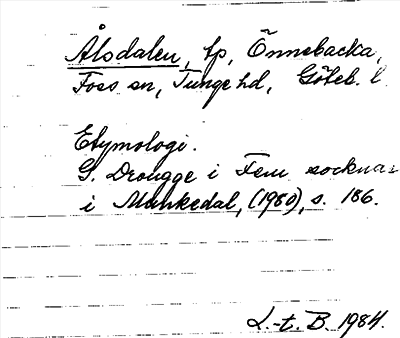 Ålsdalen, tp, Önnebacka,
Foss sn, Tunge hd, Göteb. l
Etymologi.
G. Drougge i Fem socknar
i Munkedal, (1980), s. 186.
L.-t. B. 1984.